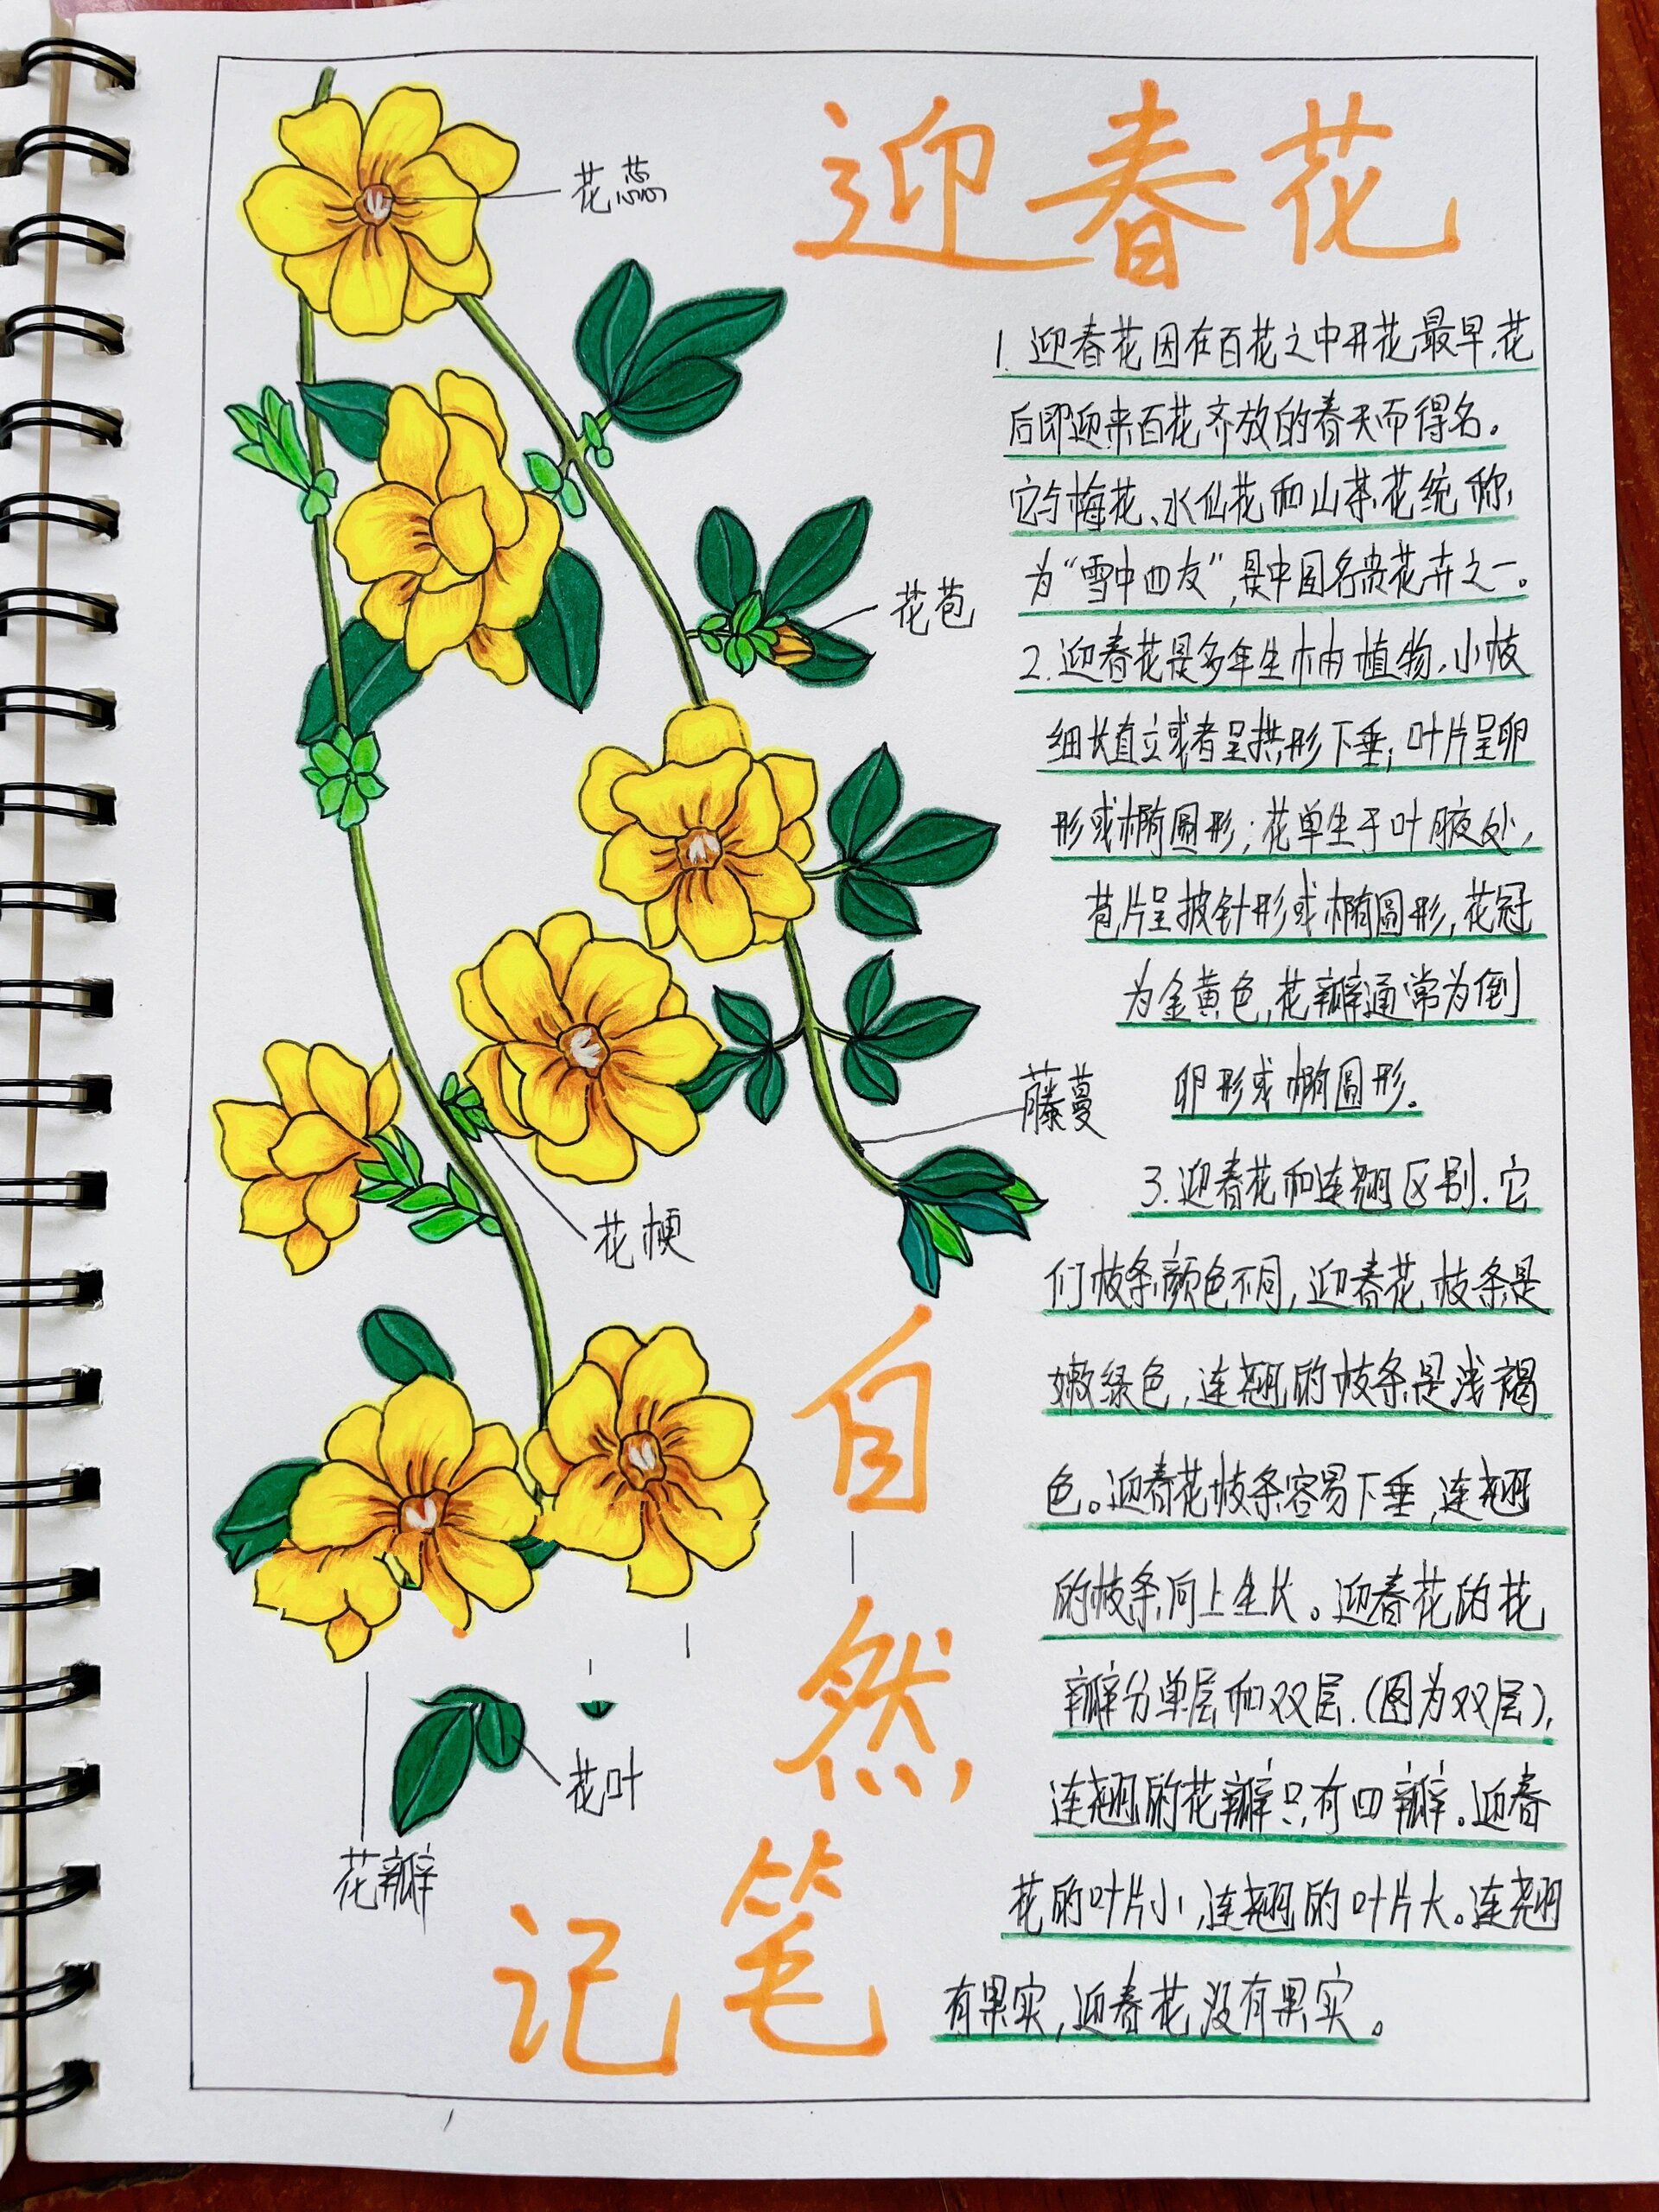 迎春花
花蕊
1.迎春花因在百花之中开花最早,花
后即迎来百花齐放的春天而得名。
它与梅花、水仙花和山茶花统称
为“雪中四友”,是中国名贵花卉之一。
花苞
2.迎春花是多年生木本植物,小枝
细长直立或者呈拱形下垂;叶片呈卵
形或椭圆形;花单生于叶腋处,
苞片呈披针形或椭圆形,花冠
为金黄色,花瓣通常为倒
卵形或椭圆形。
藤蔓
3.迎春花和连翘区别.它
们枝条颜色不同,迎春花枝条是
嫩绿色,连翘的枝条是浅褐
色。迎春花枝条容易下垂,连翘
的枝条向上生长。迎春花的花
瓣分单层和双层.(图为双层),
连翘的花瓣只有四瓣。迎春
花的叶片小,连翘的叶片大。连翘
有果实,迎春花没有果实。
花梗
花叶
花瓣
自
然
笔
记